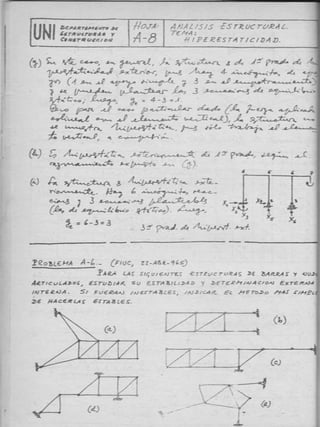 UNI
DEPARTAMENTO DE
ESTRUCTURAS Y
CONSTRUCCION
HOJA:
A-8
ANALISIS ESTRUCTURAL
TEMA:
HIPERESTATICIDAD.
(g) En este caso, en general, la estructura es de 1er grado de
hiperestaticidad exterior, pues hay 4
(1 en el apoyo simple y 3 en el empotramiento)
y se pueden plantear las 3 ecuaciones de equilibrio
estático, luego: = 4-3 = 1.
Pero para el caso particular dado (la fuerza aplicada
en el elemento vertical), la estructura no
se muestra hiperestática, pues sólo trabaja el elemen-
to vertical, a compresión.
(h) Es hiperestática exteriormente de 1er grado, según el
razonamiento expuesto en (g).
(i) La estructura es hiperestática exte-
riormente. Hay 6 incógnitas reac-
ciones y 3 ecuaciones planteables
(las de equilibrio estático). Luego:
= 6-3 = 3
3er grad. de hiperest. ext.
PROBLEMA A-6.- (FIUC, 22-ABR-965)
PARA LAS SIGUIENTES ESTRUCTURAS DE BARRAS Y NUDOS
ARTICULADOS, ESTUDIAR SU ESTABILIDAD Y DETERMINACION EXTERNA
INTERNA. SI FUERAN INESTABLES, INDICAR EL METODO MAS SIMPLE
DE HACERLAS ESTABLES.
(a)
(b)
(c)
(d)
(e)